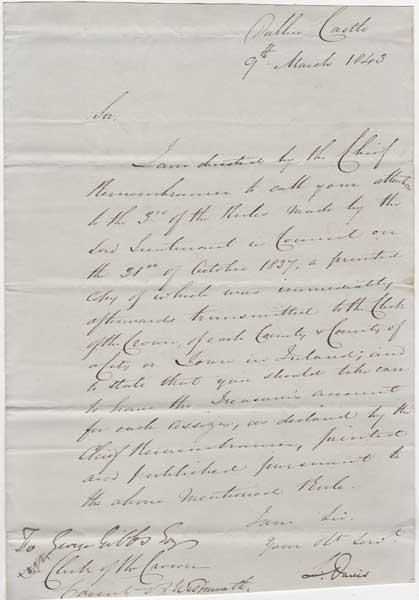 Dublin Castle
9th March 1843
Sir,
I am directed by the Chief
Remembrancer to call your attention
to the 3rd of the Rules made by the
Lord Lieutenant in Council on
the 31st of October 1837, a printed
Copy of which was immediately
afterwards transmitted to the Clerk
of the Crown, of each County & County of
a City or Town in Ireland; and
to state that you should take care
to have the Treasurer's account
for each Assizes, as declared by the
Chief Remembrancer, printed
and published pursuant to
the above Mentioned Rule.
I am Sir.
Your Obt Servt.
To George Gibbs Esq
Clerk of the Crown
County of Westmeath.
Davis